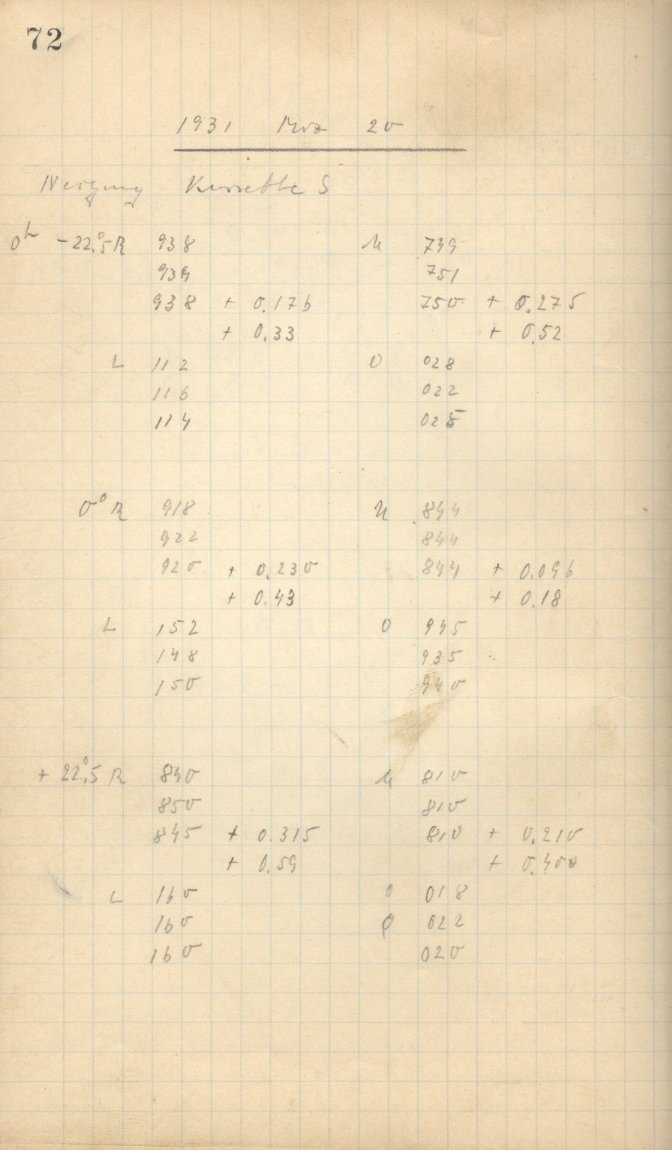 72
1931 Mrz 20
Neigung Kassette S
0h -22°.5 R 938 U 749
939 751
938 + 0.176 750 + 0.275
+ 0.33 + 0.52
L 112 O 028
116 022
114 025
0° R 918 U 844
922 844
920 + 0.230 844 + 0.096
+ 0.43 + 0.18
L 152 O 945
148 935
150 940
+ 22°.5 R 840 U 810
850 810
845 + 0.315 810 + 0.210
+ 0.59 + 0.40
L 160 O 018
160 O 022
160 020